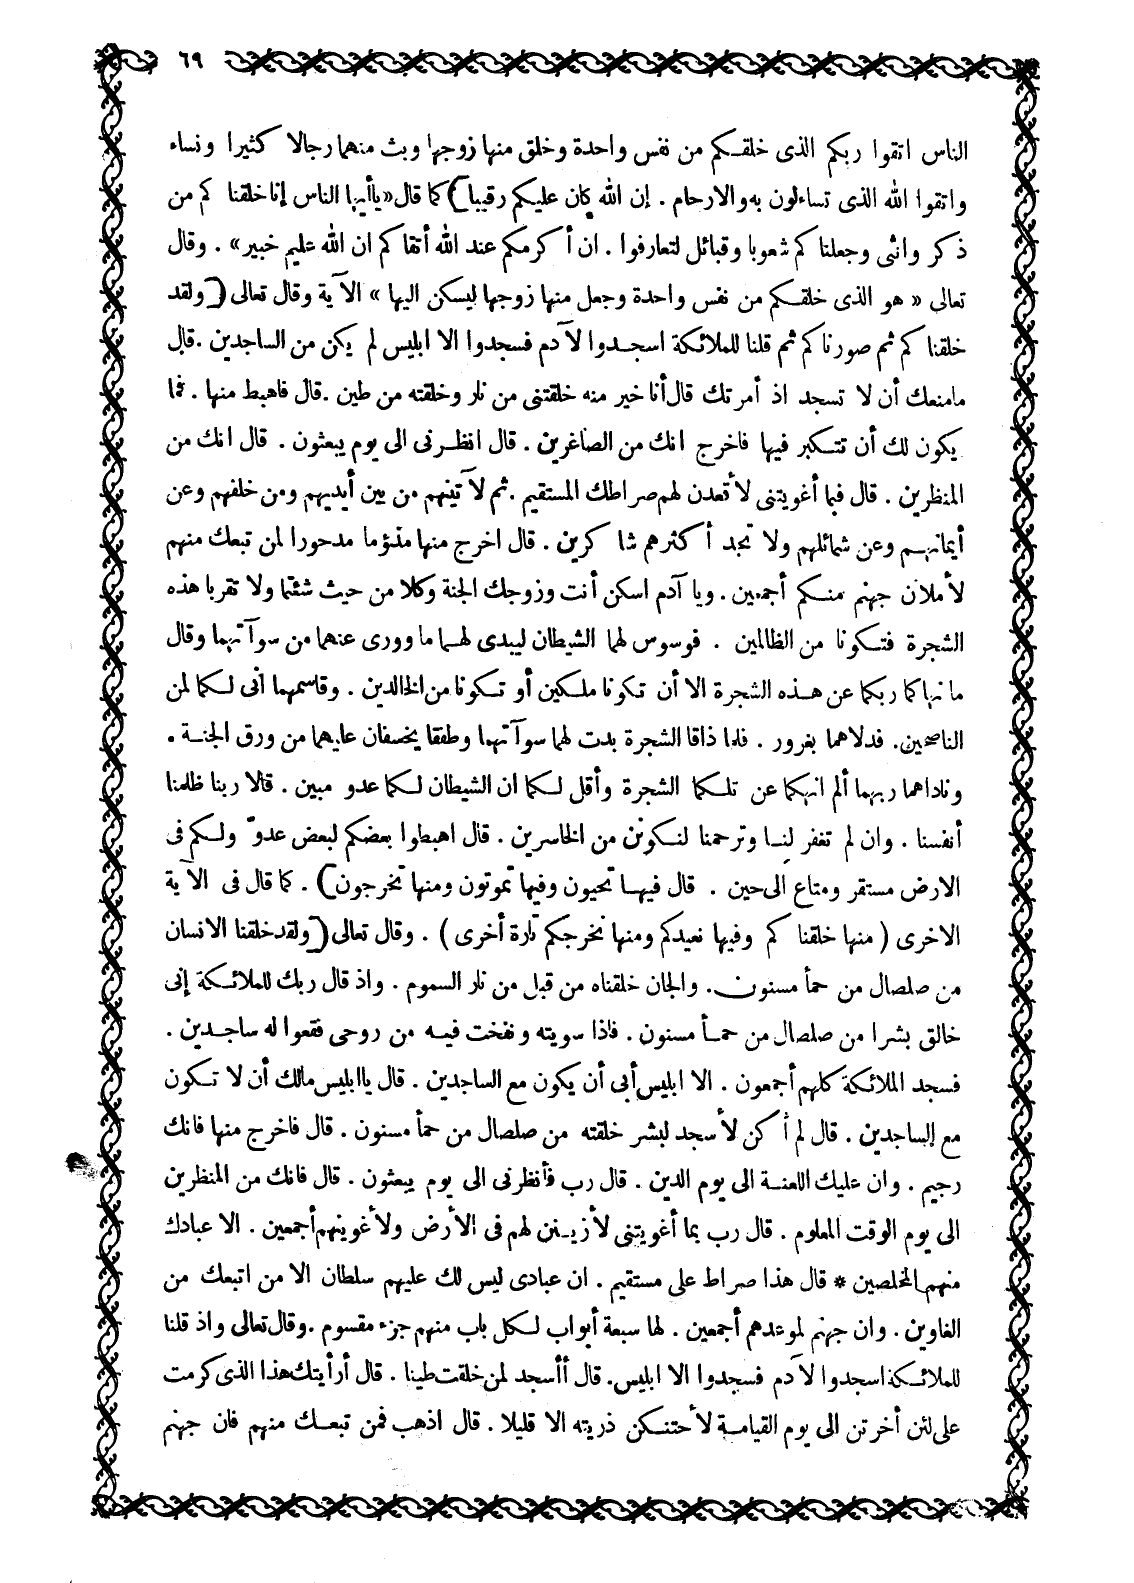 ٦٩
الناس اتقوا ربكم الذى خلقكم من نفس واحدة وخلق منها زوجها وبث منهما رجالا كثيرا ونساء
واتقوا الله الذى تساءلون به والارحام . إن الله كان عليكم رقيبا) كما قال «يا أيها الناس إنا خلقنا كم من
ذكر وانثى وجعلنا كم شعوبا وقبائل لتعارفوا . ان أكرمكم عند الله أتقا كم ان الله عليم خبير» . وقال
تعالى « هو الذى خلقكم من نفس واحدة وجعل منها زوجها ليسكن اليها » الآية وقال تعالى (ولقد
خلقنا كم ثم صورنا كم ثم قلنا للملائكة اسجدوا لآدم فسجدوا الا ابليس لم يكن من الساجدين . قال
مامنعك أن لا تسجد اذ أمرتك قال أنا خير منه خلقتنى من نار وخلقته من طين . قال فاهبط منها . فما
يكون لك أن تتكبر فيها فاخرج انك من الصاغرين . قال انظرنى الى يوم يبعثون . قال انك من
المنظرين . قال فبما أغويتنى لأقعدن لهم صراطك المستقيم . ثم لآتينهم من بين أيديهم ومن خلفهم وعن
أيمانهم وعن شمائلهم ولا تجد أكثرهم شا كرين . قال اخرج منها مذؤما مدحورا لمن تبعك منهم
لأملأن جهنم منكم أجمعين . ويا آدم اسكن أنت وزوجك الجنة وكلا من حيث شئتما ولا تقربا هذه
الشجرة فتكونا من الظالمين . فوسوس لهما الشيطان ليبدى لهما ما وورى عنهما من سوآتهما وقال
ما نهاكما ربكما عن هذه الشجرة الا أن تكونا ملكين أو تكونا من الخالدين . وقاسمهما انى لكما لمن
الناصحين . فدلاهما بغرور . فلما ذاقا الشجرة بدت لهما سوآتهما وطفقا يخصفان عليهما من ورق الجنة .
وناداهما ربهما ألم انهكما عن تلكما الشجرة وأقل لكما ان الشيطان لكما عدو مبين . قالا ربنا ظلمنا
أنفسنا . وان لم تغفر لنا وترحمنا لنكونن من الخاسرين . قال اهبطوا بعضكم لبعض عدوّ ولكم فى
الارض مستقر ومتاع الى حين . قال فيها تحيون وفيها تموتون ومنها تخرجون) . كما قال فى الآية
الاخرى ( منها خلقنا كم وفيها نعيدكم ومنها نخرجكم تارة أخرى ) . وقال تعالى (ولقد خلقنا الانسان
من صلصال من حمأ مسنون . والجان خلقناه من قبل من نار السموم . واذ قال ربك للملائكة إنى
خالق بشرا من صلصال من حمأ مسنون . فاذا سويته ونفخت فيه من روحى فقعوا له ساجدين .
فسجد الملائكة كلهم أجمعون . الا ابليس أبى أن يكون مع الساجدين . قال يا ابليس مالك أن لا تكون
مع الساجدين . قال لم أكن لأسجد لبشر خلقته من صلصال من حمأ مسنون . قال فاخرج منها فانك
رجيم . وان عليك اللعنة الى يوم الدين . قال رب فأنظرنى الى يوم يبعثون . قال فانك من المنظرين
الى يوم الوقت المعلوم . قال رب بما أغويتنى لأزينن لهم فى الأرض ولأغوينهم أجمعين . الا عبادك
منهم المخلصين * قال هذا صراط على مستقيم . ان عبادى ليس لك عليهم سلطان الا من اتبعك من
الغاوين . وان جهنم لموعدهم أجمعين . لها سبعة أبواب لكل باب منهم جزء مقسوم . وقال تعالى واذ قلنا
للملائكة اسجدوا لآدم فسجدوا الا ابليس . قال أأسجد لمن خلقت طينا . قال أرأيتك هذا الذى كرمت
على لئن أخرتن الى يوم القيامة لأحتنكن ذريته الا قليلا . قال اذهب فمن تبعك منهم فان جهنم